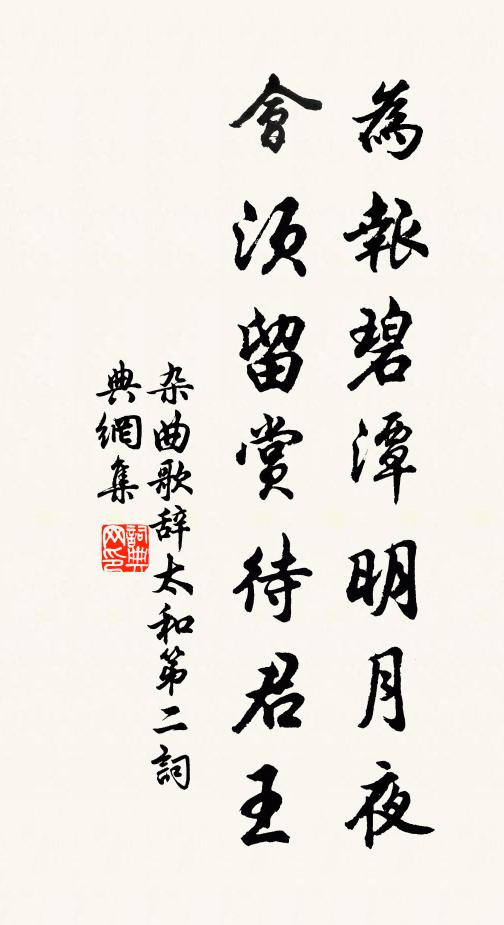 為報碧潭明月夜
會須留賞待君王
杂曲歌辞太和第二詞
典網集
詞典网印